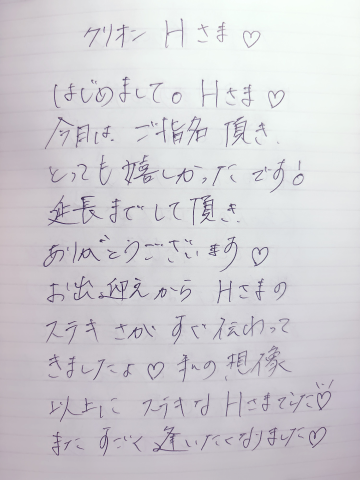 クリオン Hさま♡
はじめまして。Hさま♡
今日は、ご指名 頂き、
とっても嬉しかったです!
延長までして頂き、
ありがとうございます♡
お出迎えから Hさまの
ステキさが すぐ伝わって
きましたよ♡ 私の想像
以上に ステキな Hさまでした♡
また すごく 逢いたくなりました♡